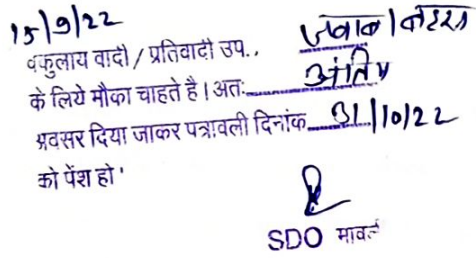 15/9/22
वकुलाय वादी / प्रतिवादी उप.. जवाब/बहस
के लिये मौका चाहते है। अतः अंतिम
अवसर दिया जाकर पत्रावली दिनांक 31/10/22
को पेंश हो'
SDO मावली